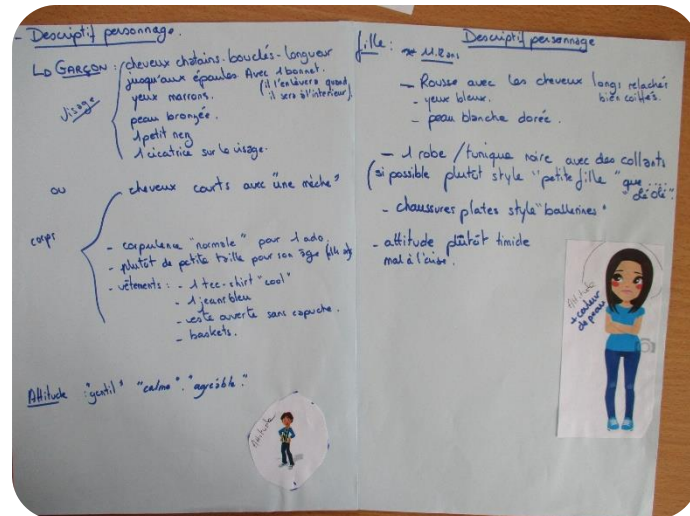 - Descriptif personnage.
LE GARÇON : cheveux châtains - bouclés - longueur
jusqu'aux épaules Avec 1 bonnet.
(il l'enlèvera quand
il sera à l'intérieur).
Visage
yeux marrons.
peau bronzée.
1 petit nez
1 cicatrice sur le visage.
ou
cheveux courts avec "une mèche"
corps
- corpulence "normale" pour 1 ado.
- plutôt de petite taille pour son âge
- vêtements : - 1 tee-shirt "cool"
- 1 jean bleu
- veste ouverte sans capuche.
- baskets.
Attitude "gentil" "calme". "agréable".
Attitude
Descriptif personnage
fille : * 11.12 ans
- Rousse avec les cheveux longs relachés
bien coiffés.
- yeux bleus.
- peau blanche dorée.
- 1 robe / tunique noire avec des collants
(si possible plutôt style "petite fille" que ....
"olé olé"
- chaussures plates style "ballerines"
- attitude plûtôt timide
mal à l'aise.
Attitude
+ couleur
de peau